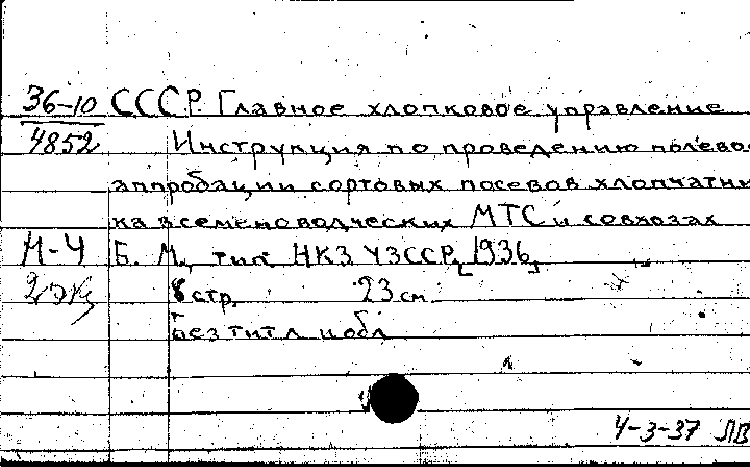 36-10 СССР. Главное хлопковое управление
4852 Инструкция по проведению полево
аппробации сортовых посевов хлопчатни
ка в семеноводческих МТС и совхозах
М-4 Б. М., тип. НКЗ УЗССР, [1936]
2 экз 8 стр. 23 см.
Без титл. и обл.
4-3-37 ЛВ